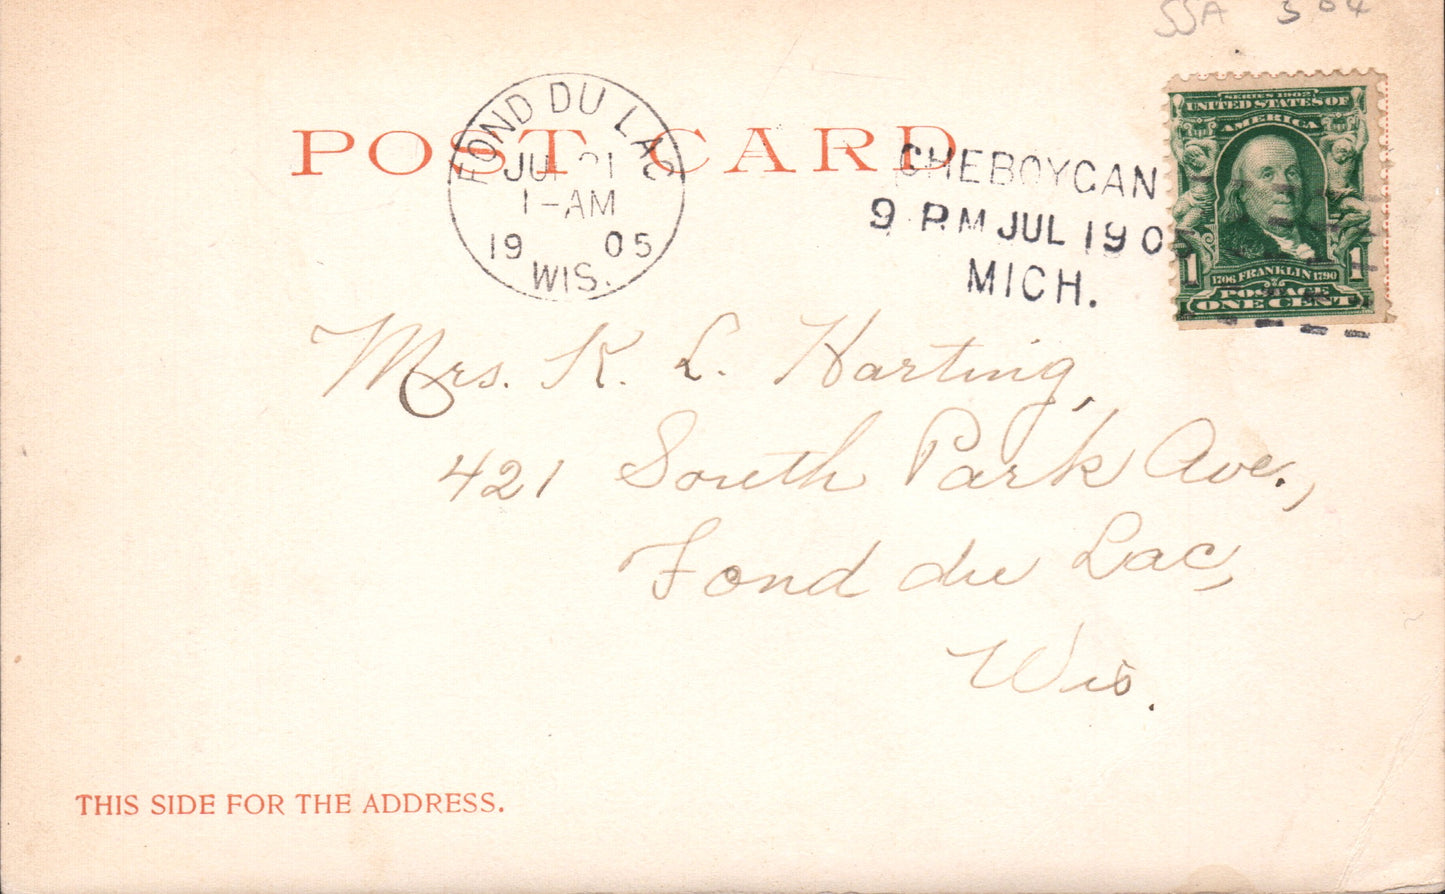 SSA 304
POST CARD
FOND DU LAC
JUL 21
1-AM
19 05
WIS.
CHEBOYGAN
9 PM JUL 19 05
MICH.
SERIES 1902
UNITED STATES OF
AMERICA
1706 FRANKLIN 1790
1 POSTAGE 1
ONE CENT
Mrs. K. L. Harting,
421 South Park Ave.,
Fond du Lac,
Wis.
THIS SIDE FOR THE ADDRESS.